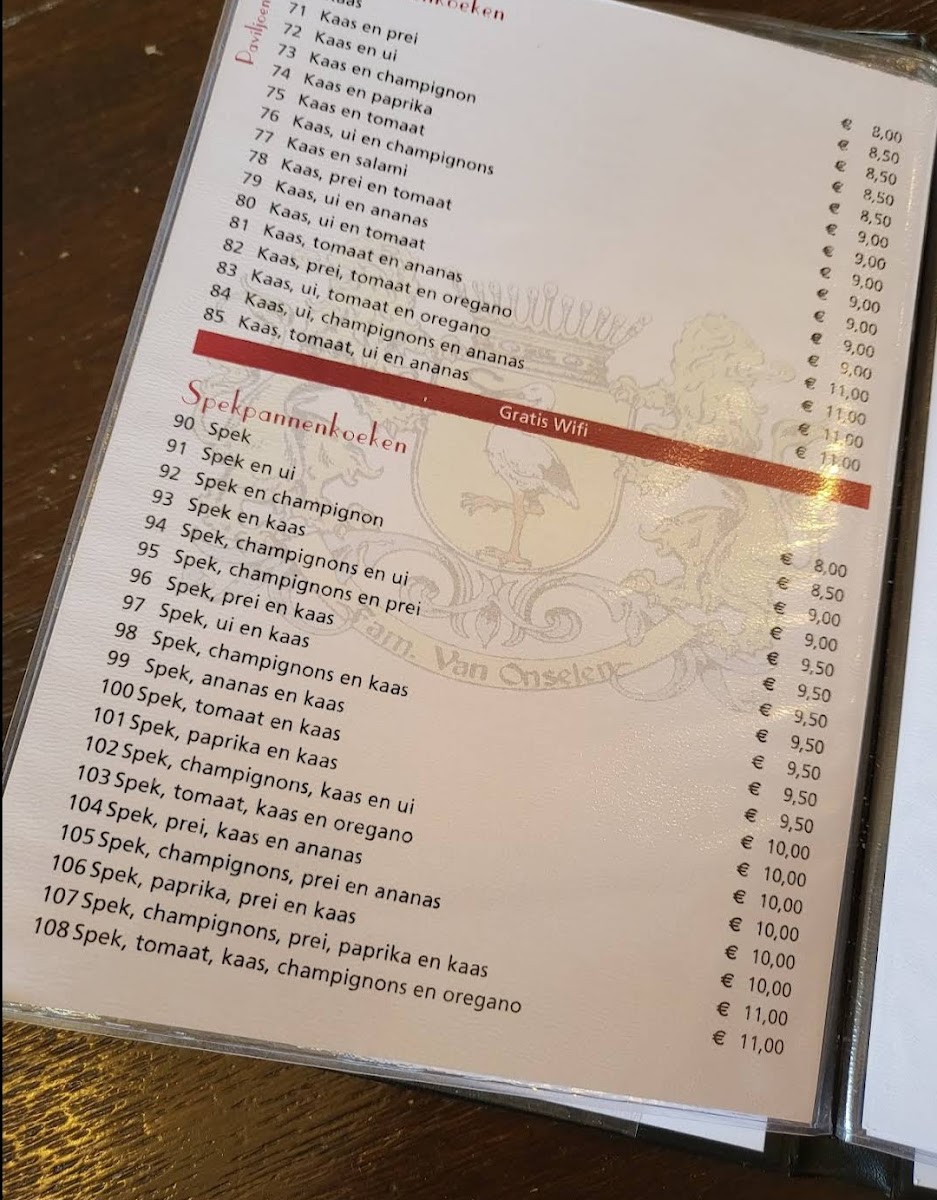 nkoeken
Paviljoen
aas € 8,00
71 Kaas en prei € 8,50
72 Kaas en ui € 8,50
73 Kaas en champignon € 8,50
74 Kaas en paprika € 8,50
75 Kaas en tomaat € 9,00
76 Kaas, ui en champignons € 9,00
77 Kaas en salami € 9,00
78 Kaas, prei en tomaat € 9,00
79 Kaas, ui en ananas € 9,00
80 Kaas, ui en tomaat € 9,00
81 Kaas, tomaat en ananas € 9,00
82 Kaas, prei, tomaat en oregano € 11,00
83 Kaas, ui, tomaat en oregano € 11,00
84 Kaas, ui, champignons en ananas € 11,00
85 Kaas, tomaat, ui en ananas € 11,00
Gratis Wifi
Spekpannenkoeken
90 Spek € 8,00
91 Spek en ui € 8,50
92 Spek en champignon € 9,00
93 Spek en kaas € 9,00
94 Spek, champignons en ui € 9,50
95 Spek, champignons en prei € 9,50
96 Spek, prei en kaas € 9,50
97 Spek, ui en kaas € 9,50
98 Spek, champignons en kaas € 9,50
99 Spek, ananas en kaas € 9,50
100 Spek, tomaat en kaas € 9,50
101 Spek, paprika en kaas € 10,00
102 Spek, champignons, kaas en ui € 10,00
103 Spek, tomaat, kaas en oregano € 10,00
104 Spek, prei, kaas en ananas € 10,00
105 Spek, champignons, prei en ananas € 10,00
106 Spek, paprika, prei en kaas € 10,00
107 Spek, champignons, prei, paprika en kaas € 11,00
108 Spek, tomaat, kaas, champignons en oregano € 11,00
fam. Van Onselen